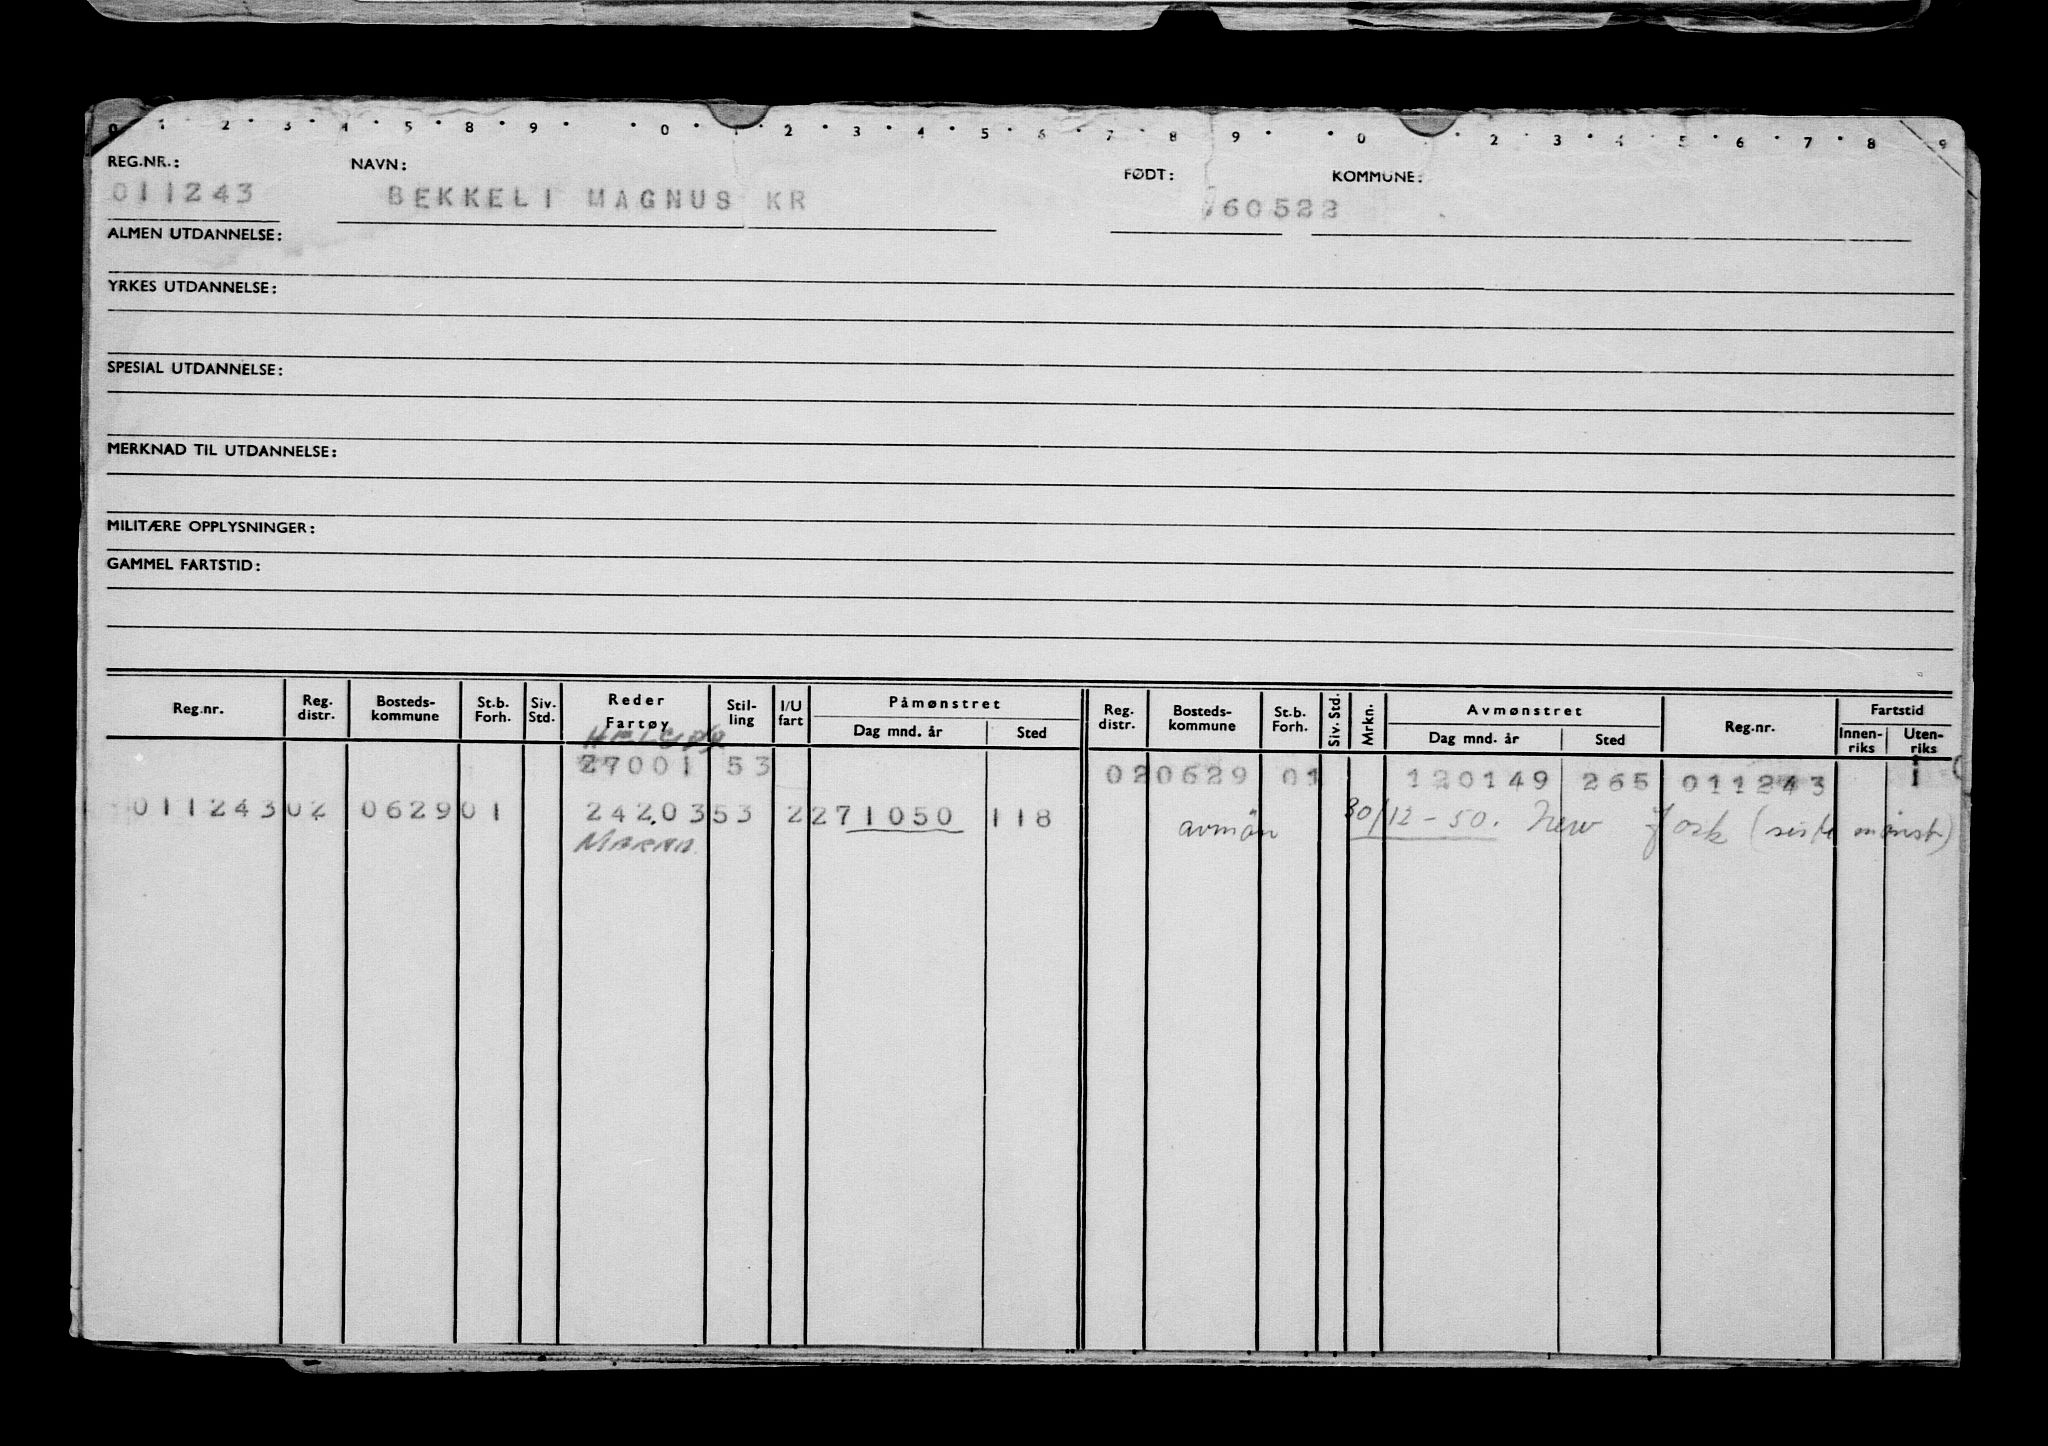 0 1 2 3 4 5 8 9 0 1 2 3 4 5 6 7 8 9 0 2 3 4 5 6 7 8 9
REG.NR.: NAVN: FØDT: KOMMUNE:
011243 BEKKELI MAGNUS KR 160522
ALMEN UTDANNELSE:
YRKES UTDANNELSE:
SPESIAL UTDANNELSE:
MERKNAD TIL UTDANNELSE:
MILITÆRE OPPLYSNINGER:
GAMMEL FARTSTID:
Reg.nr. Reg. distr. Bosteds-kommune St.b. Forh. Siv. Std. Reder Fartøy Stil-ling I/U fart Påmønstret Dag mnd. år Sted Reg. distr. Bosteds-kommune St.b. Forh. Siv. Std. Mrkn. Avmønstret Dag mnd. år Sted Reg.nr. Fartstid Innen-riks Uten-riks
27001 53 02 0629 01 120149 265 011243 1
011243 02 0629 01 24203 53 2 271050 118 avmøn 30/12-50. New York (siste mønstr)